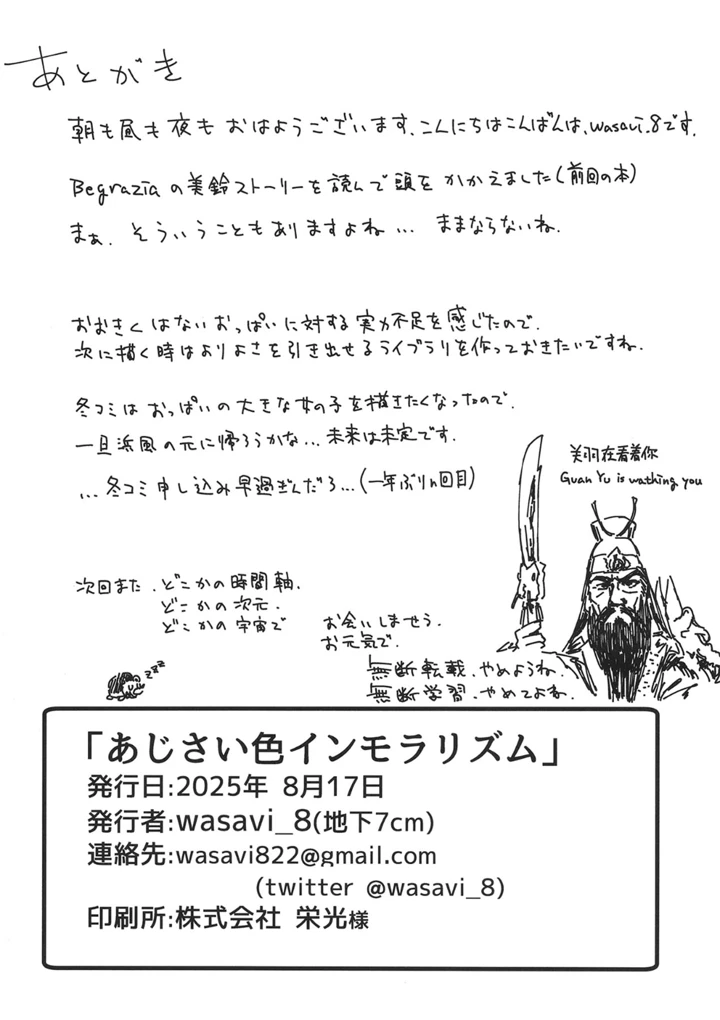 あとがき
朝も昼も夜も おはようございます、こんにちはこんばんは、wasavi_8です。
Begraziaの美鈴ストーリーを読んで頭をかかえました(前回の本)
まぁ、そういうこともありますよね… ままならないね。
おおきくはないおっぱいに対する実力不足を感じたので、
次に描く時はよりよさを引き出せるライブラリを作っておきたいですね。
冬コミはおっぱいの大きな女の子を描きたくなったので、
一旦浜風の元に帰ろうかな… 未来は未定です。
…冬コミ申し込み早過ぎんだろ…(一年ぶりn回目)
美羽在看着你
Guan Yu is wathing you
次回また、どこかの時間軸、
どこかの次元、
どこかの宇宙で
お会いしませう。
お元気で。
無断転載、やめようね。
無断学習、やめてよね。
zzz
「あじさい色インモラリズム」
発行日:2025年 8月17日
発行者:wasavi_8(地下7cm)
連絡先:wasavi822@gmail.com
(twitter @wasavi_8)
印刷所:株式会社 栄光様